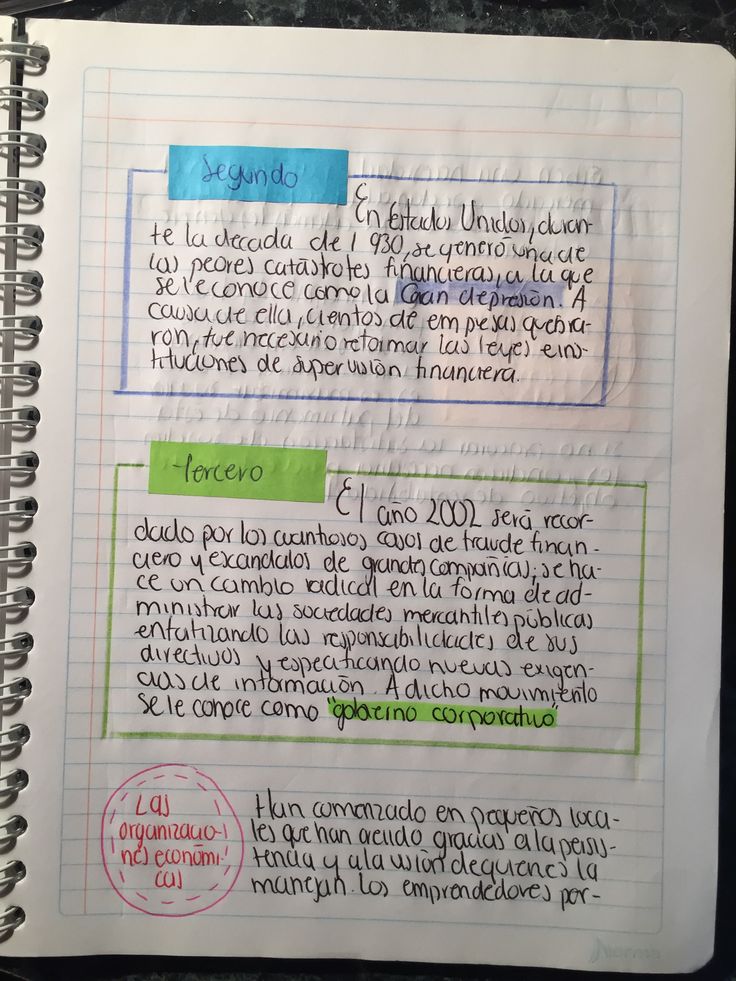 Segundo
En Estados Unidos, duran-
te la década de 1930, se generó una de
las peores catástrofes financieras, a la que
se le conoce como la Gran depresión. A
causa de ella, cientos de empesas quebra-
ron, fue necesario reformar las leyes e ins-
tituciones de supervisión financiera.
tercero
El año 2002 será recor-
dado por los cuantiosos casos de fraude finan-
ciero y escandalos de grandes compañías; se ha-
ce un cambio radical en la forma de ad-
ministrar las sociedades mercantiles públicas
enfatizando las responsabilidades de sus
directivos y especificando nuevas exigen-
cias de información. A dicho movimiento
se le conoce como "gobierno corporativo"
Las
organizacio-
nes económi-
cas
Han comenzado en pequeños loca-
les que han acudo gracias a la persis-
tencia y a la visión de quienes la
manejan. los emprendedores por-
Norma